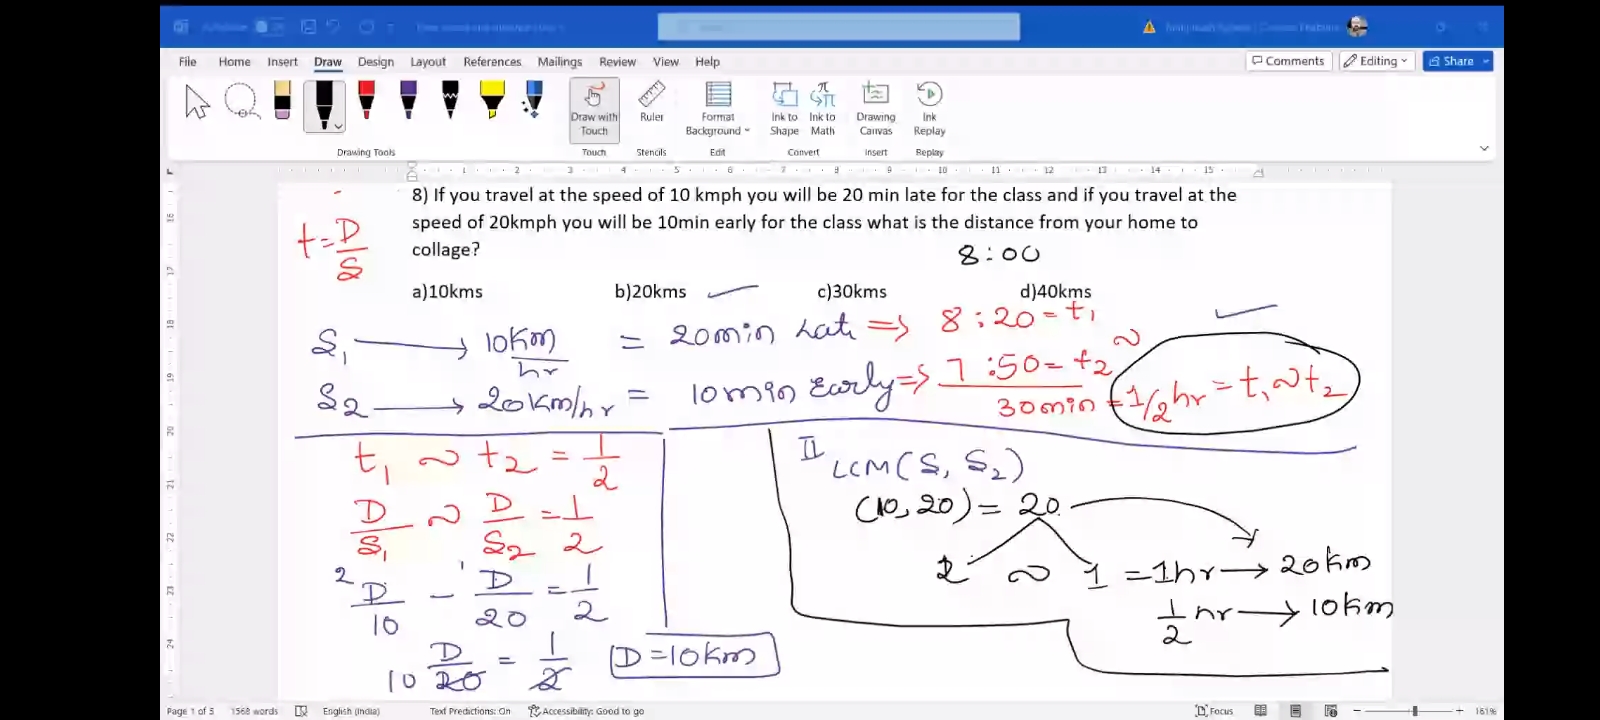 File Home Insert Draw Design Layout References Mailings Review View Help
Comments Editing Share
Draw with Touch Ruler Format Background Ink to Shape Ink to Math Drawing Canvas Ink Replay
Drawing Tools Touch Stencils Edit Convert Insert Replay
1 2 3 4 5 6 7 8 9 10 11 12 13 14 15
16
17
18
19
20
21
22
23
24
8) If you travel at the speed of 10 kmph you will be 20 min late for the class and if you travel at the
speed of 20kmph you will be 10min early for the class what is the distance from your home to
collage?
8:00
t = D/S
a)10kms b)20kms c)30kms d)40kms
S1 → 10Km/hr = 20min Late ⇒ 8:20 = t1
S2 → 20Km/hr = 10min Early ⇒ 7:50 = t2
~
30min = 1/2 hr = t1 ~ t2
t1 ~ t2 = 1/2
D/S1 ~ D/S2 = 1/2
2 D/10 - 1 D/20 = 1/2
10 D/20 = 1/2
D = 10Km
II LCM(S, S2)
(10, 20) = 20
2 ~ 1 = 1hr → 20km
1/2 hr → 10km
Page 1 of 5 1568 words English (India) Text Predictions: On Accessibility: Good to go Focus 161%